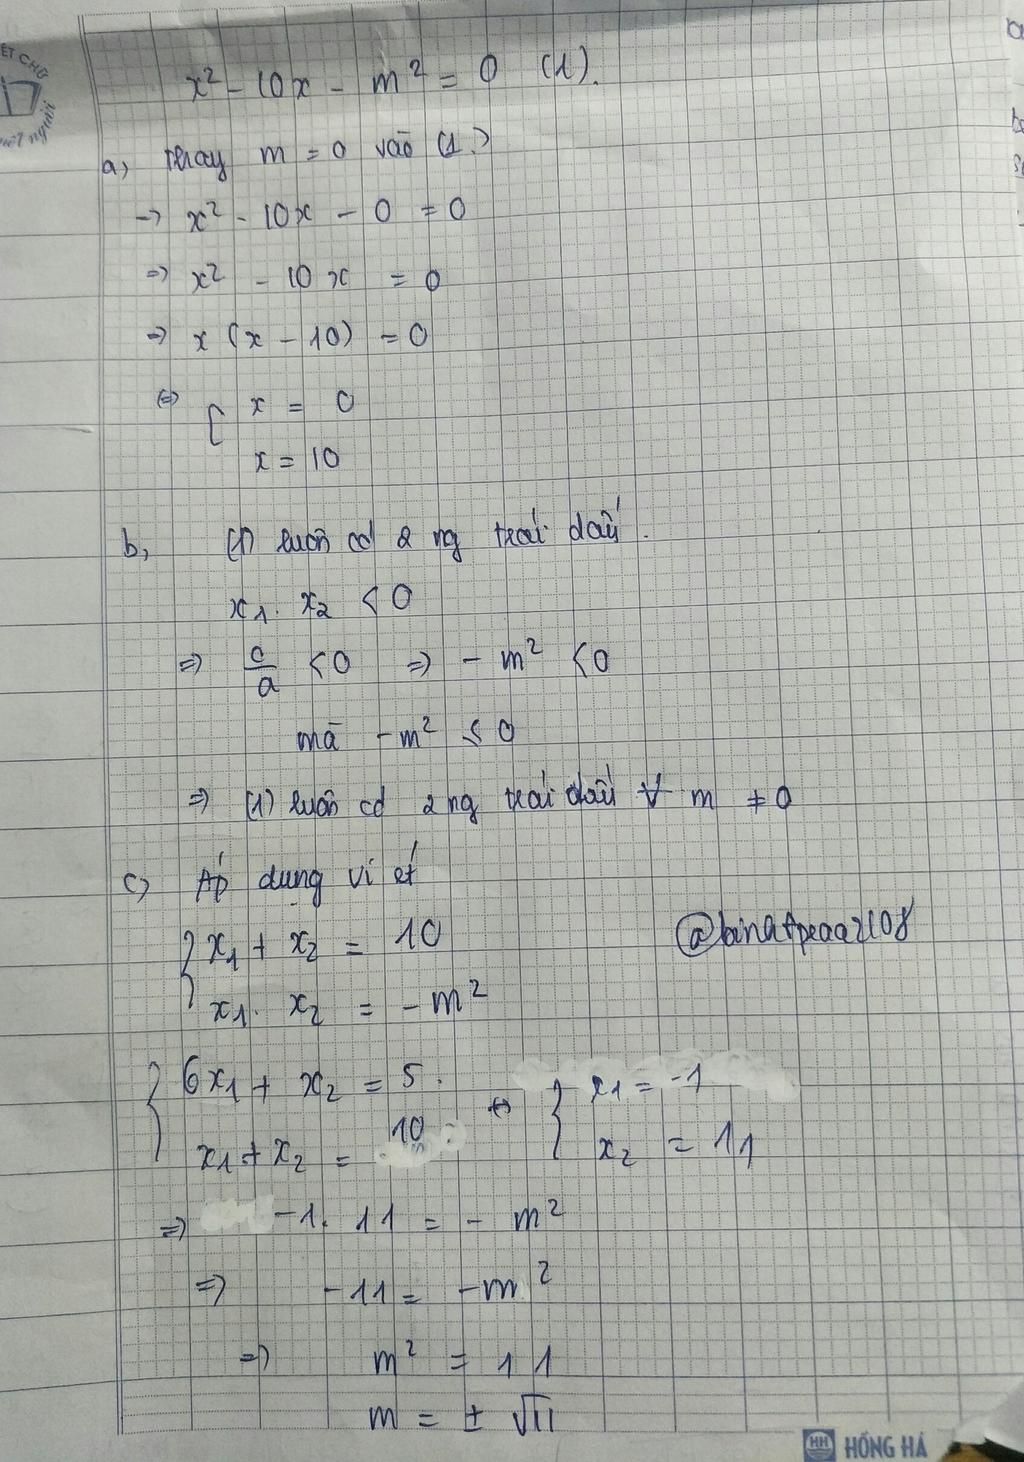 ẾT CHỮ
x² - 10x - m² = 0 (1).
a, thay m = 0 vào (1.)
-> x² - 10x - 0 = 0
=> x² - 10x = 0
=> x (x - 10) = 0
<=> [ x = 0
x = 10
b, (1) luôn có 2 ng trái dấu.
x₁. x₂ < 0
=> c/a < 0 => - m² < 0
mà -m² ≤ 0
=> (1) luôn có 2 ng trái dấu ∀ m ≠ 0
c) Áp dụng vi ét
{ x₁ + x₂ = 10
x₁. x₂ = - m²
@binatpeaa2108
{ 6x₁ + x₂ = 5. <=> { x₁ = -1
x₁ + x₂ = 10 x₂ = 11
=> -1. 11 = - m²
=> -11 = -m²
=> m² = 11
m = ± √11
HH HỒNG HÀ